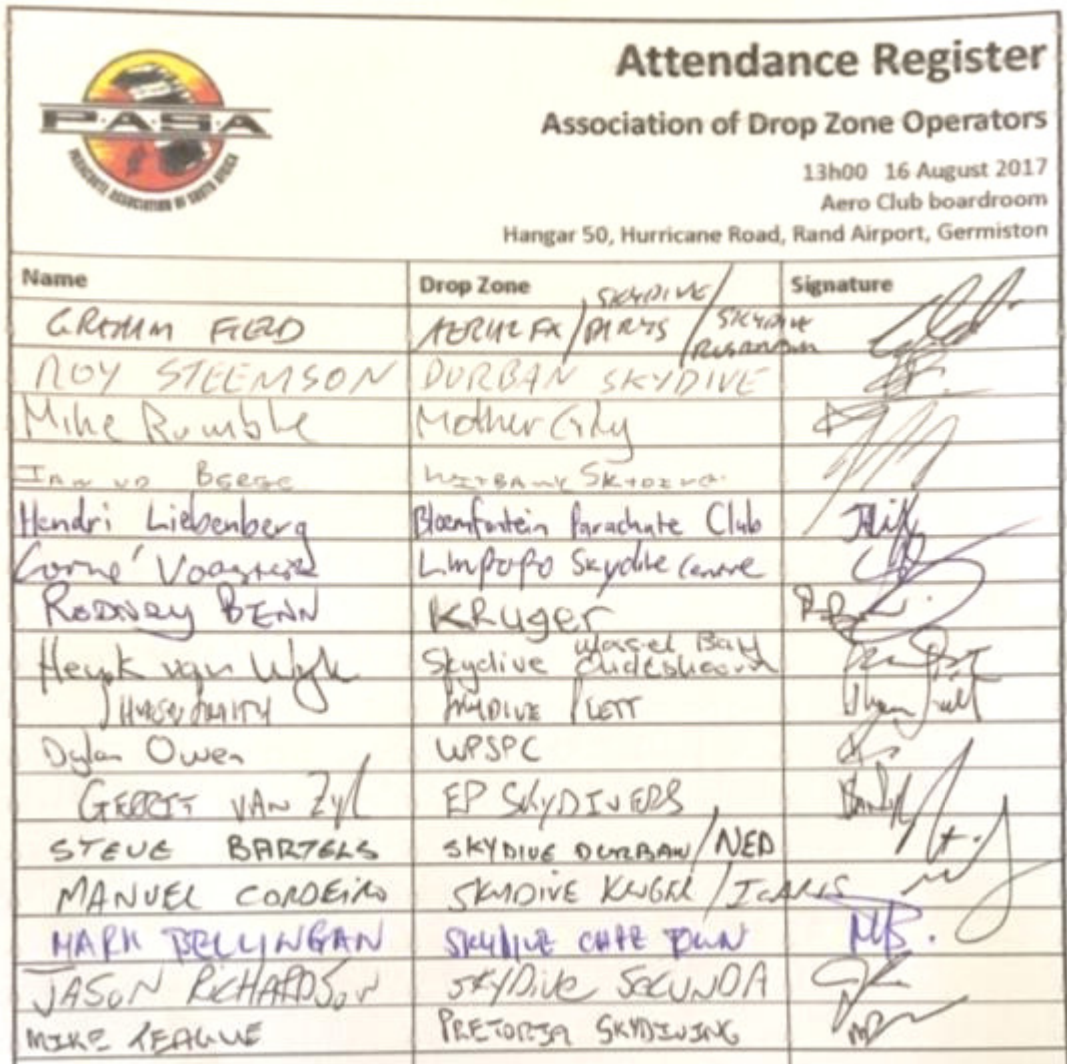 Attendance Register
Association of Drop Zone Operators
P·A·S·A
PARACHUTE ASSOCIATION OF SOUTH AFRICA
13h00 16 August 2017
Aero Club boardroom
Hangar 50, Hurricane Road, Rand Airport, Germiston
Name Drop Zone Signature
GRAHAM FIELD AERIAL FX / SKYDIVE PARYS / SKYDIVE RUSTENBURG
ROY STEEMSON DURBAN SKYDIVE
Mike Rumble Mother City
WITBANK SKYDIVING
Hendri Liebenberg Bloemfontein Parachute Club
Corné Limpopo Skydive Centre
RODNEY BENN KRUGER
Henk van Wyk Skydive Mossel Bay Oudtshoorn
SKYDIVE
Dylan Owen WPSPC
GERRIT VAN ZYL EP SKYDIVERS
STEVE BARTELS SKYDIVE DURBAN / NED
MANUEL CORDEIRO SKYDIVE KRUGER / ICARUS
MARK BELLINGAN SKYDIVE CAPE TOWN MB.
JASON RICHARDSON SKYDIVE SECUNDA
MIKE TEAGUE PRETORIA SKYDIVING